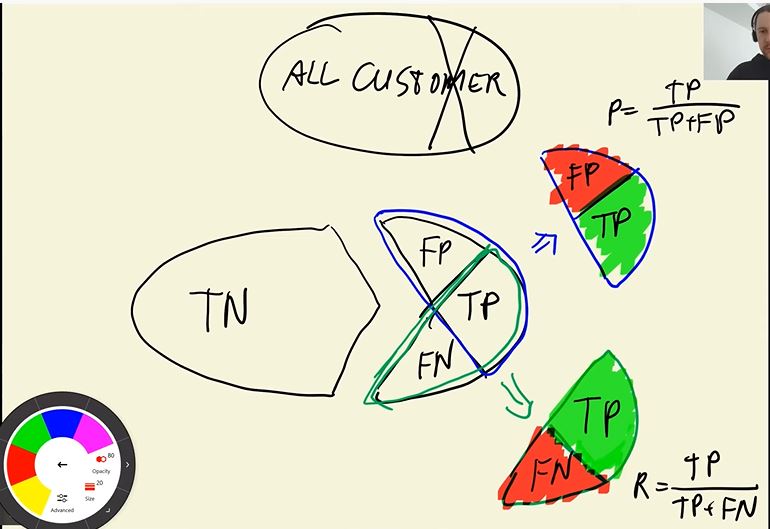 ALL CUSTOMER
P = TP / TP+FP
FP
TP
FP
TN
TP
FN
TP
FN
R = TP / TP+FN
80
Opacity
20
Size
Advanced